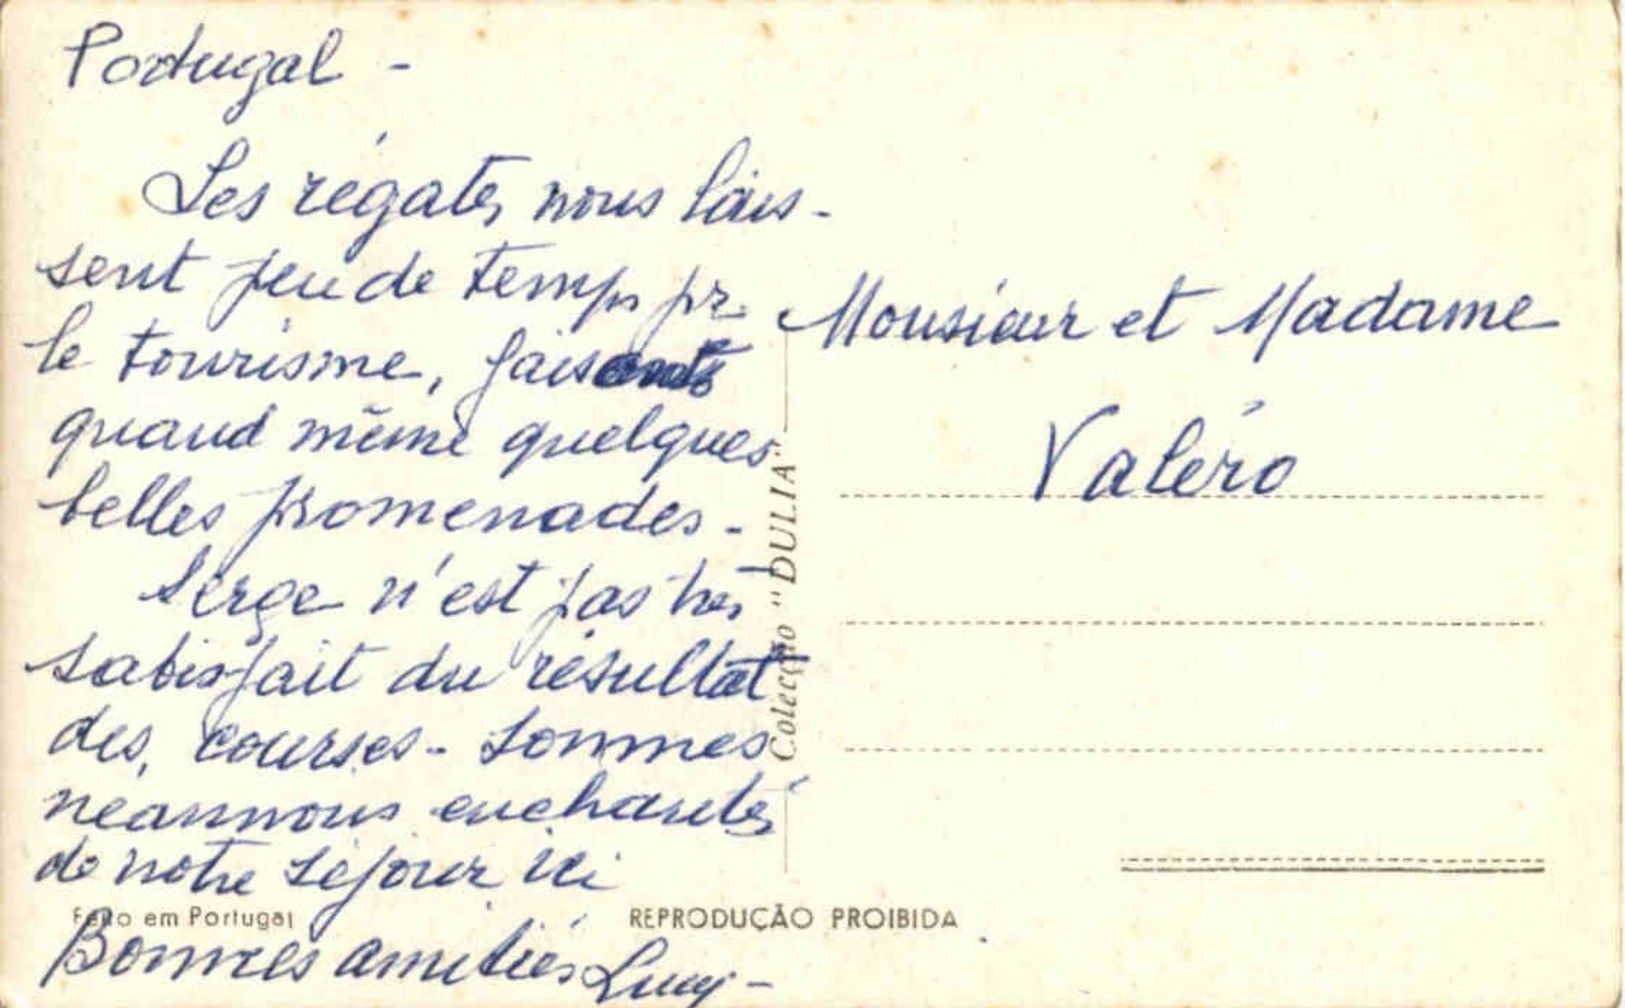 Portugal -
Les régates nous lais-
sent peu de temps pr.
le tourisme, faisons
quand même quelques
belles promenades -
Serge n'est pas très
satisfait du résultat
des, courses - sommes
neanmoins enchantés
de notre séjour ici
Bonnes amitiés Lucy -
Monsieur et Madame
Valéro
Colecção "DULIA"
Feito em Portugal
REPRODUÇÃO PROIBIDA